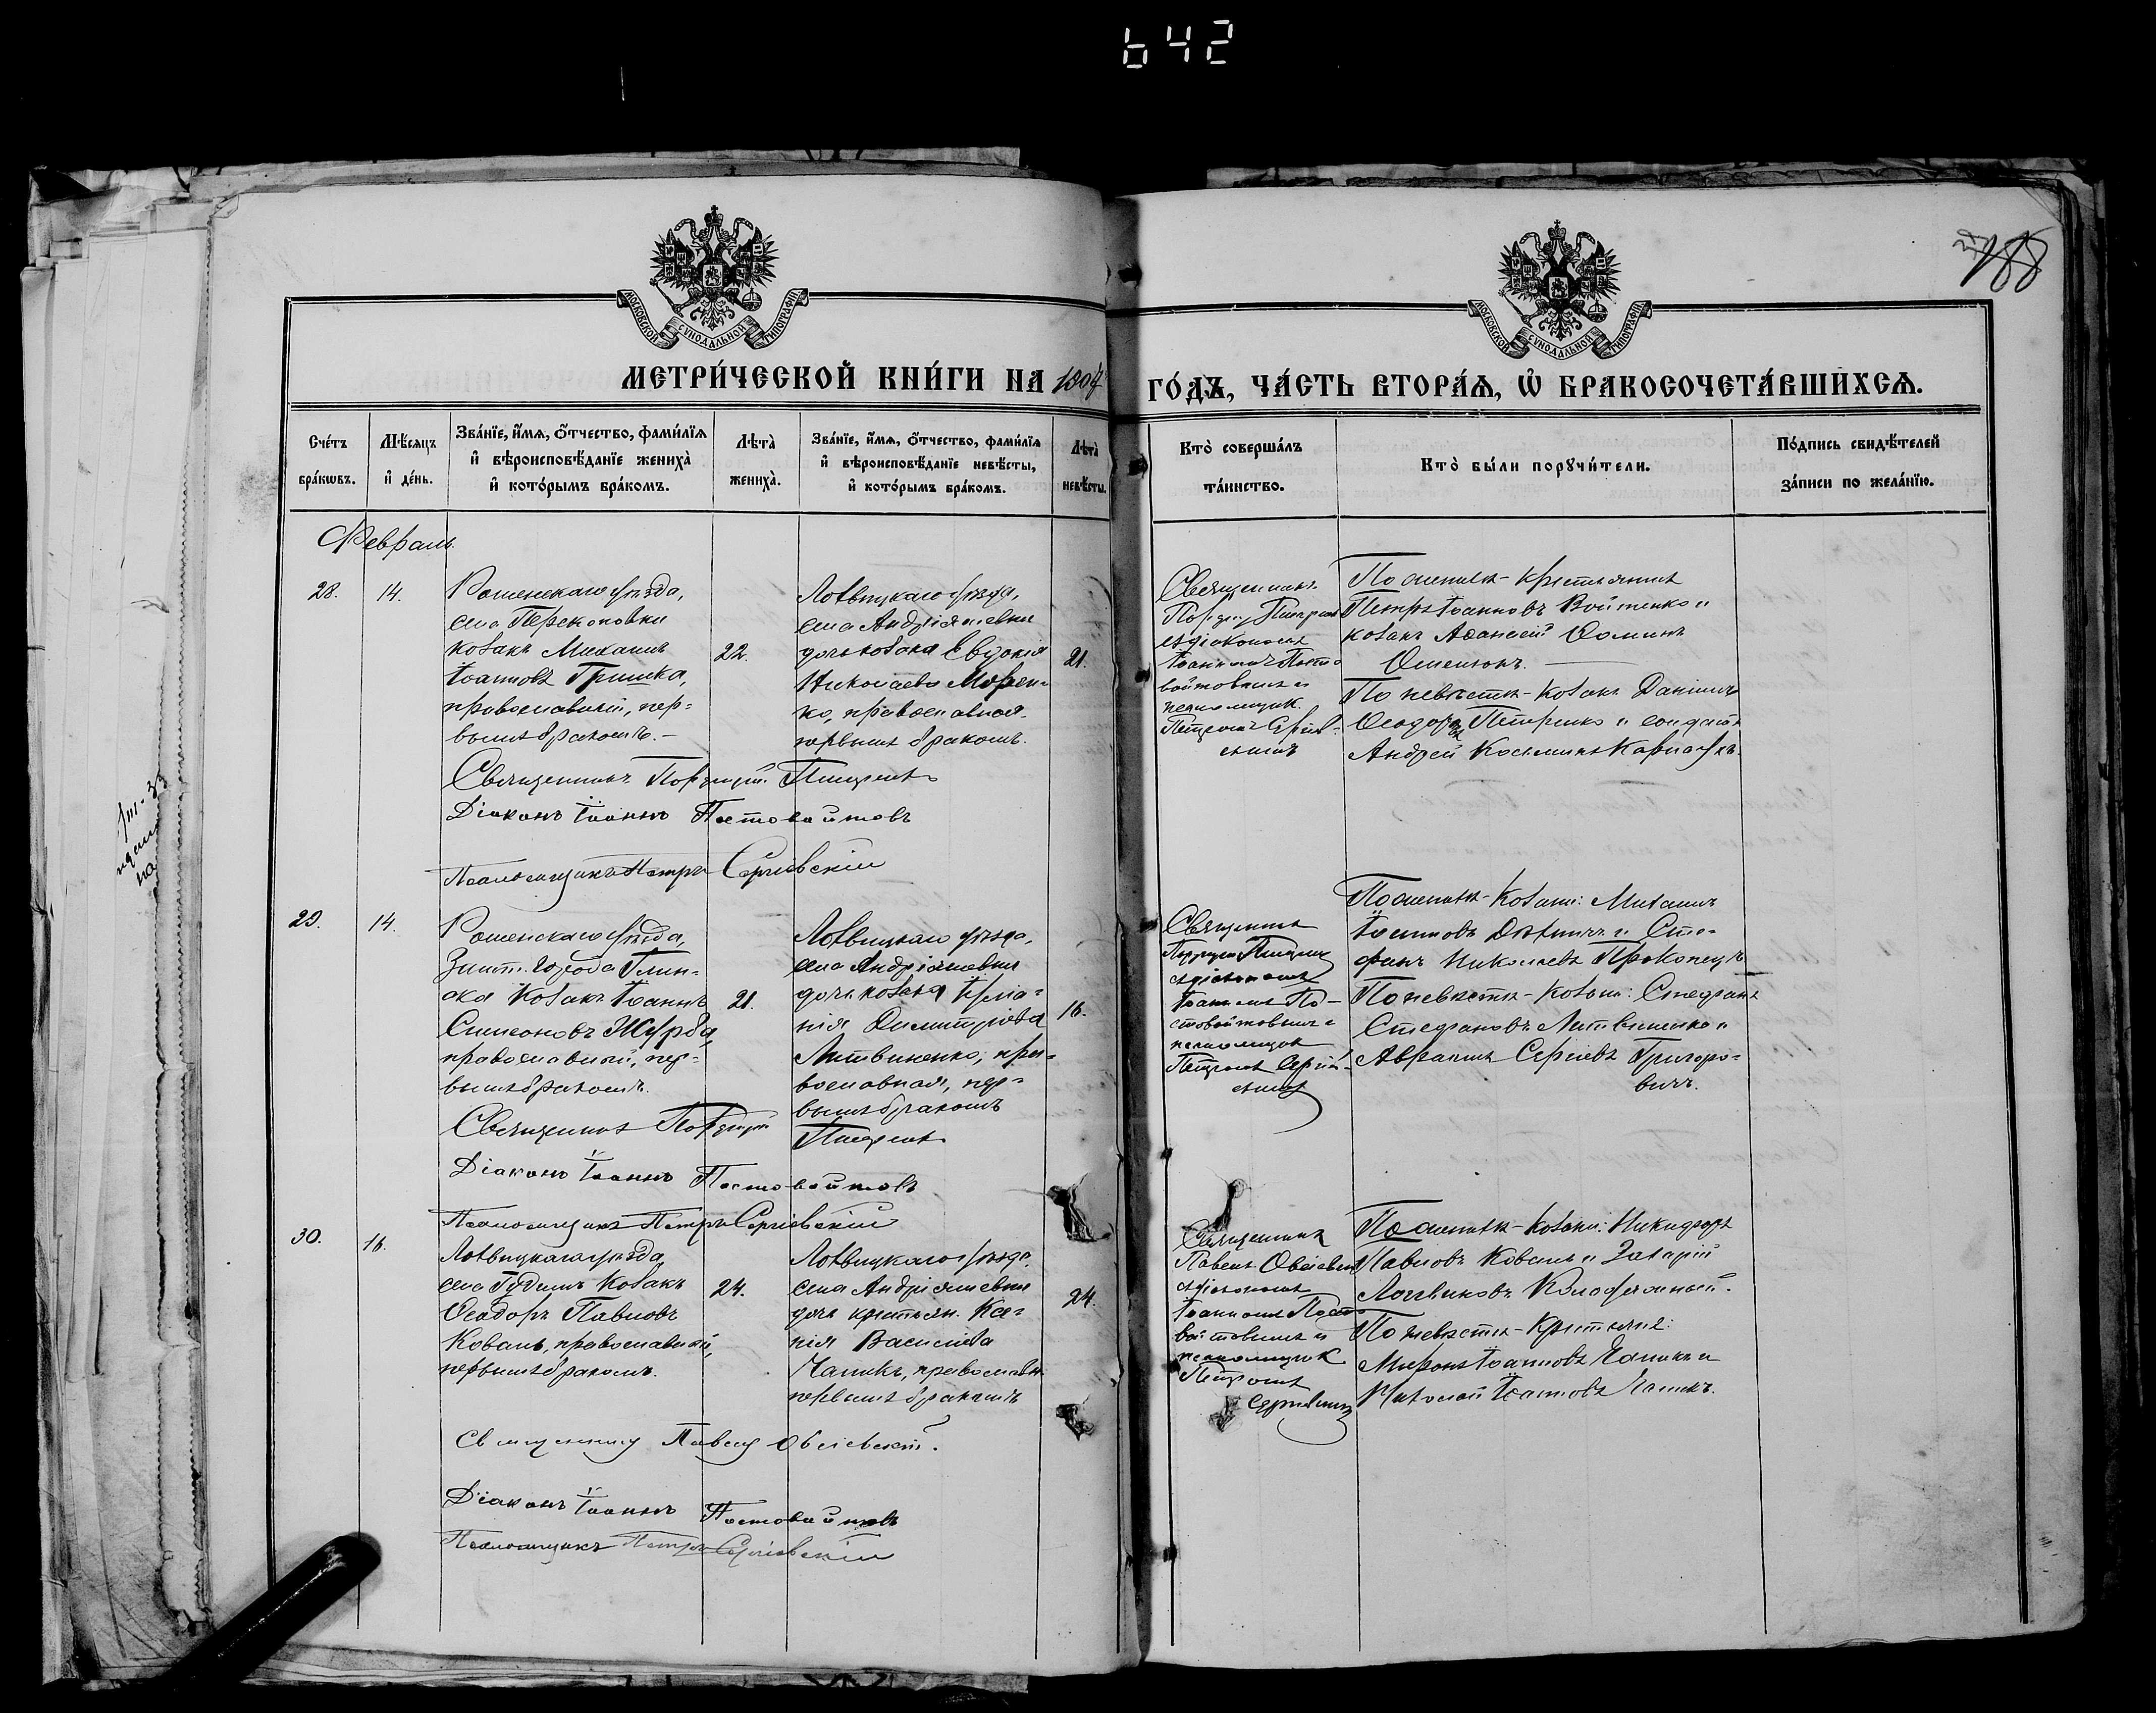 642
188
МОСКОВСКОЙ СѴНОДАЛЬНОЙ ТИПОГРАФІИ
МОСКОВСКОЙ СѴНОДАЛЬНОЙ ТИПОГРАФІИ
МЕТРИ́ЧЕСКОЙ КНИ́ГИ НА ГО́ДЪ, ЧА́СТЬ ВТОРА́Ѧ, Ѡ҆ БРАКОСОЧЕТА́ВШИХСѦ.
Сче́тъ бра́кѡвъ.
Мѣ́сѧцъ и҆ де́нь.
Зва́нїе, и҆́мѧ, ѻ҆́тчество, фами́лїѧ
и҆ вѣроисповѣ́данїе жениха̀
и҆ кото́рымъ бра́комъ.
Лѣта̀ жениха̀.
Зва́нїе, и҆́мѧ, ѻ҆́тчество, фами́лїѧ
и҆ вѣроисповѣ́данїе невѣ́сты,
и҆ кото́рымъ бра́комъ.
Лѣта̀ невѣ́сты.
Кто̀ соверша́лъ та́инство.
Кто̀ бы́ли порꙋчи́тели.
По́дпись свидѣ́телей
за́писи по жела́нїю.
Февраль.
28.
14.
Роменскаго уѣзда,
села Перекоповки
козакъ Михаилъ
Іоанновъ Гришка,
православный, пер-
вымъ бракомъ.
22.
Лохвицкаго уѣзда,
села Андріяшевки
дочь козака Евдокія
Николаева Морен-
ко, православная,
первымъ бракомъ.
21.
Священникъ
діакономъ
Іоанномъ Посто
войтовымъ и
псаломщик.
Петромъ Сергіев-
скимъ
По женихѣ - крестьянинъ
Петръ Іоанновъ Войтенко и
козакъ Аѳанасій Ѳоминъ
По невѣстѣ - козакъ Даніилъ
Ѳеодоровъ Петренко и солдатъ
Андрей Косьминъ
Священникъ
Діаконъ Іоаннъ Постовойтовъ
Псаломщикъ Петръ Сергіевскій
29.
14.
Роменскаго уѣзда,
Зашт. города Глин-
ска козакъ Іоаннъ
Симеоновъ Журба,
православный, пер-
вымъ бракомъ.
21.
Лохвицкаго уѣзда,
села Андріяшевки
дочь козака
Димитріева
Литвиненко, пра-
вославная, пер-
вымъ бракомъ
16.
Священникъ
діакономъ
Іоанномъ По-
стовойтовымъ и
псаломщик
Петромъ Сергіев-
скимъ
По женихѣ - козаки: Михаилъ
и Сте-
фанъ Николаевъ Прокопецъ
По невѣстѣ - козаки: Стефанъ
Стефановъ Литвиненко и
Авраамъ Сергіевъ Григоро-
вичъ.
Священникъ
Діаконъ Іоаннъ Постовойтовъ
Псаломщикъ Петръ Сергіевскій
30.
16.
Лохвицкаго уѣзда,
села Гудимъ козакъ
Ѳеодоръ Павловъ
Коваль, православный,
первымъ бракомъ.
24.
Лохвицкаго уѣзда,
села Андріяшевки
дочь крестьян. Ксе-
нія Василіева
Чапикъ, православн.
первымъ бракомъ
24.
Священникъ
Павелъ
діакономъ
Іоанномъ Посто
войтовымъ и
псаломщик
Петромъ
Сергіевскимъ
По женихѣ - козаки: Никифоръ
Павловъ Коваль и Захарій
По невѣстѣ - крестьяне:
Миронъ Іоанновъ Чапикъ и
Николай Іоанновъ Чапикъ.
Священникъ Павелъ
Діаконъ Іоаннъ Постовойтовъ
Псаломщикъ Петръ Сергіевскій